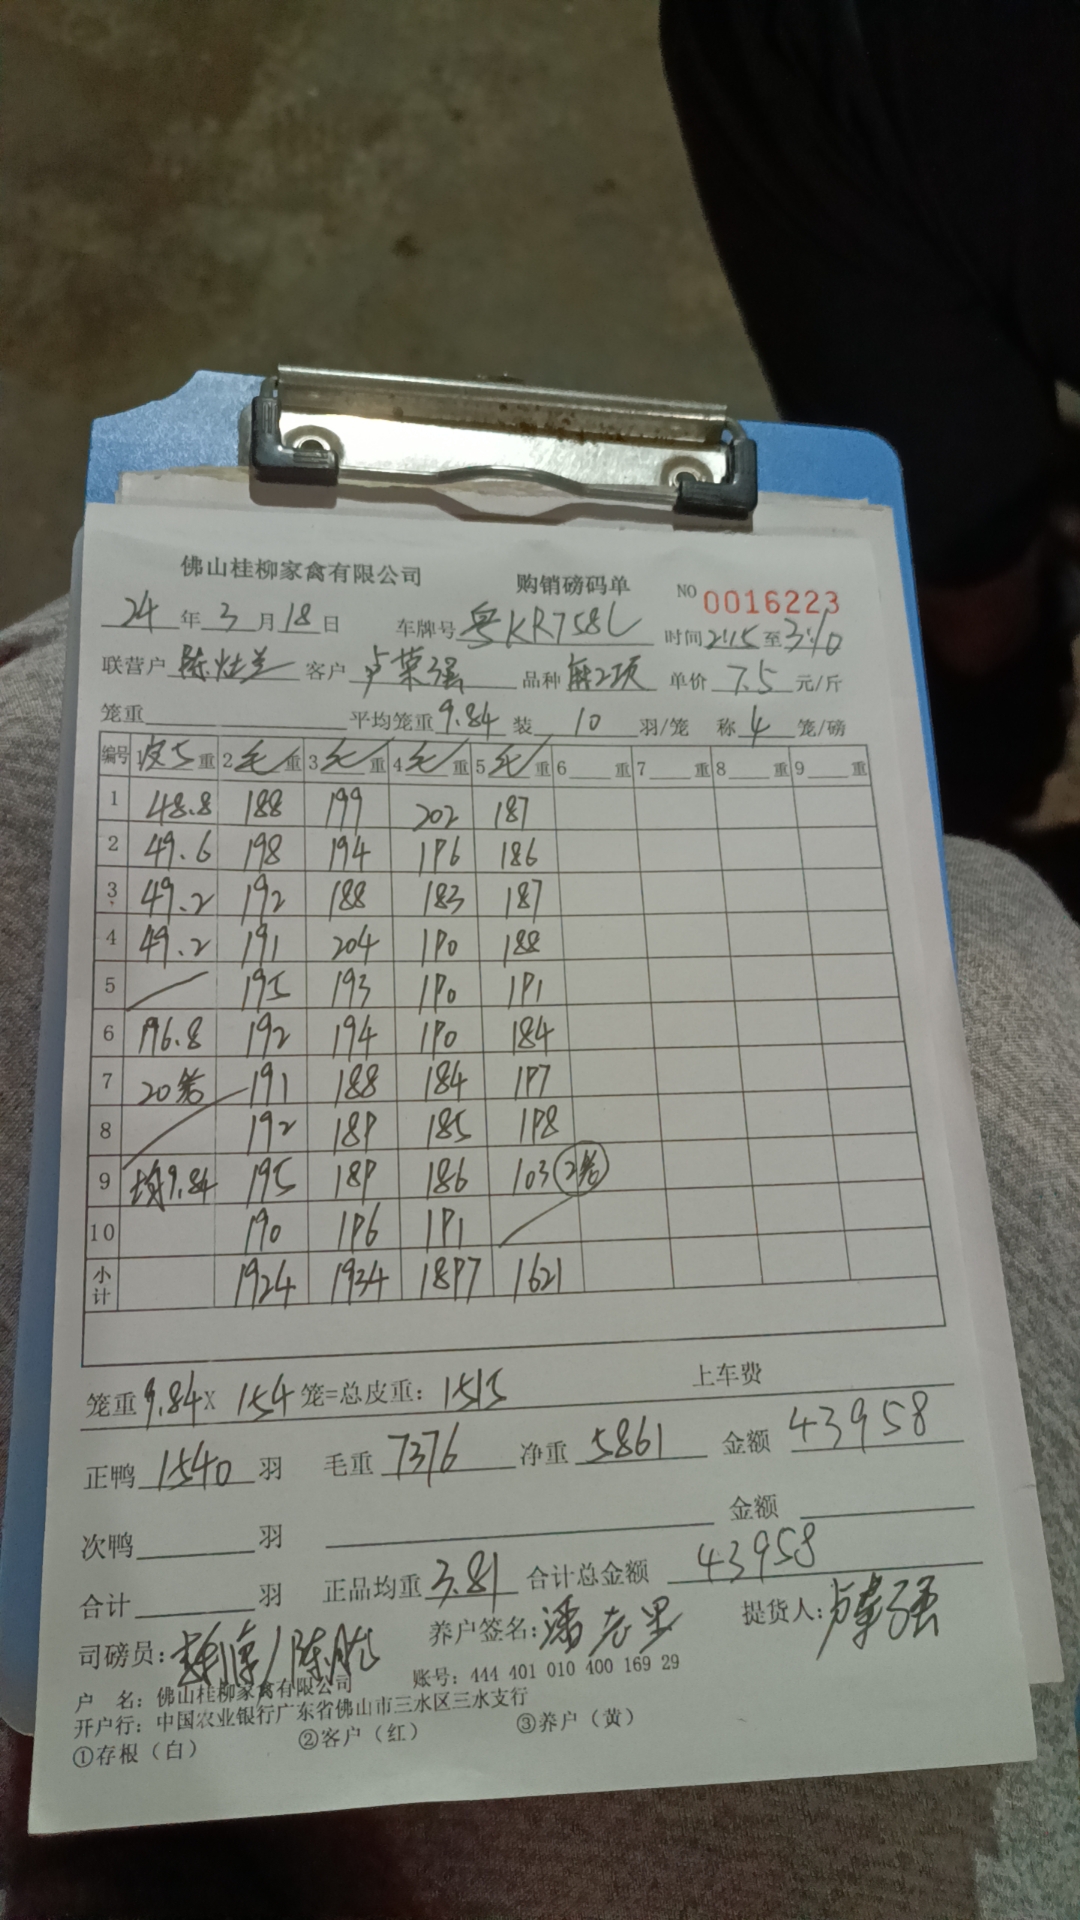 佛山桂柳家禽有限公司 购销磅码单 NO 0016223
24年3月18日 车牌号 粤KR758L 时间2:15至3:10
联营户 陈灶兰 客户 卢荣强 品种 麻2项 单价 7.5 元/斤
笼重 平均笼重9.84 装 10 羽/笼 称 4 笼/磅
编号 1 皮重 2 毛重 3 毛重 4 毛重 5 毛重 6 重 7 重 8 重 9 重
1 48.8 188 199 202 187
2 49.6 198 194 196 186
3 49.2 192 188 183 187
4 49.2 191 204 190 188
5 195 193 190 191
6 196.8 192 194 190 184
7 20笼 191 188 184 197
8 192 189 185 198
9 均9.84 195 189 186 103 2笼
10 190 196 191
小计 1924 1934 1897 1621
笼重9.84X 154 笼=总皮重: 1515 上车费
正鸭 1540 羽 毛重 7376 净重 5861 金额 43958
次鸭 羽 金额
合计 羽 正品均重 3.81 合计总金额 43958
司磅员: 养户签名: 潘 提货人: 卢荣强
户 名: 佛山桂柳家禽有限公司 账号: 444 401 010 400 169 29
开户行: 中国农业银行广东省佛山市三水区三水支行
①存根（白） ②客户（红） ③养户（黄）